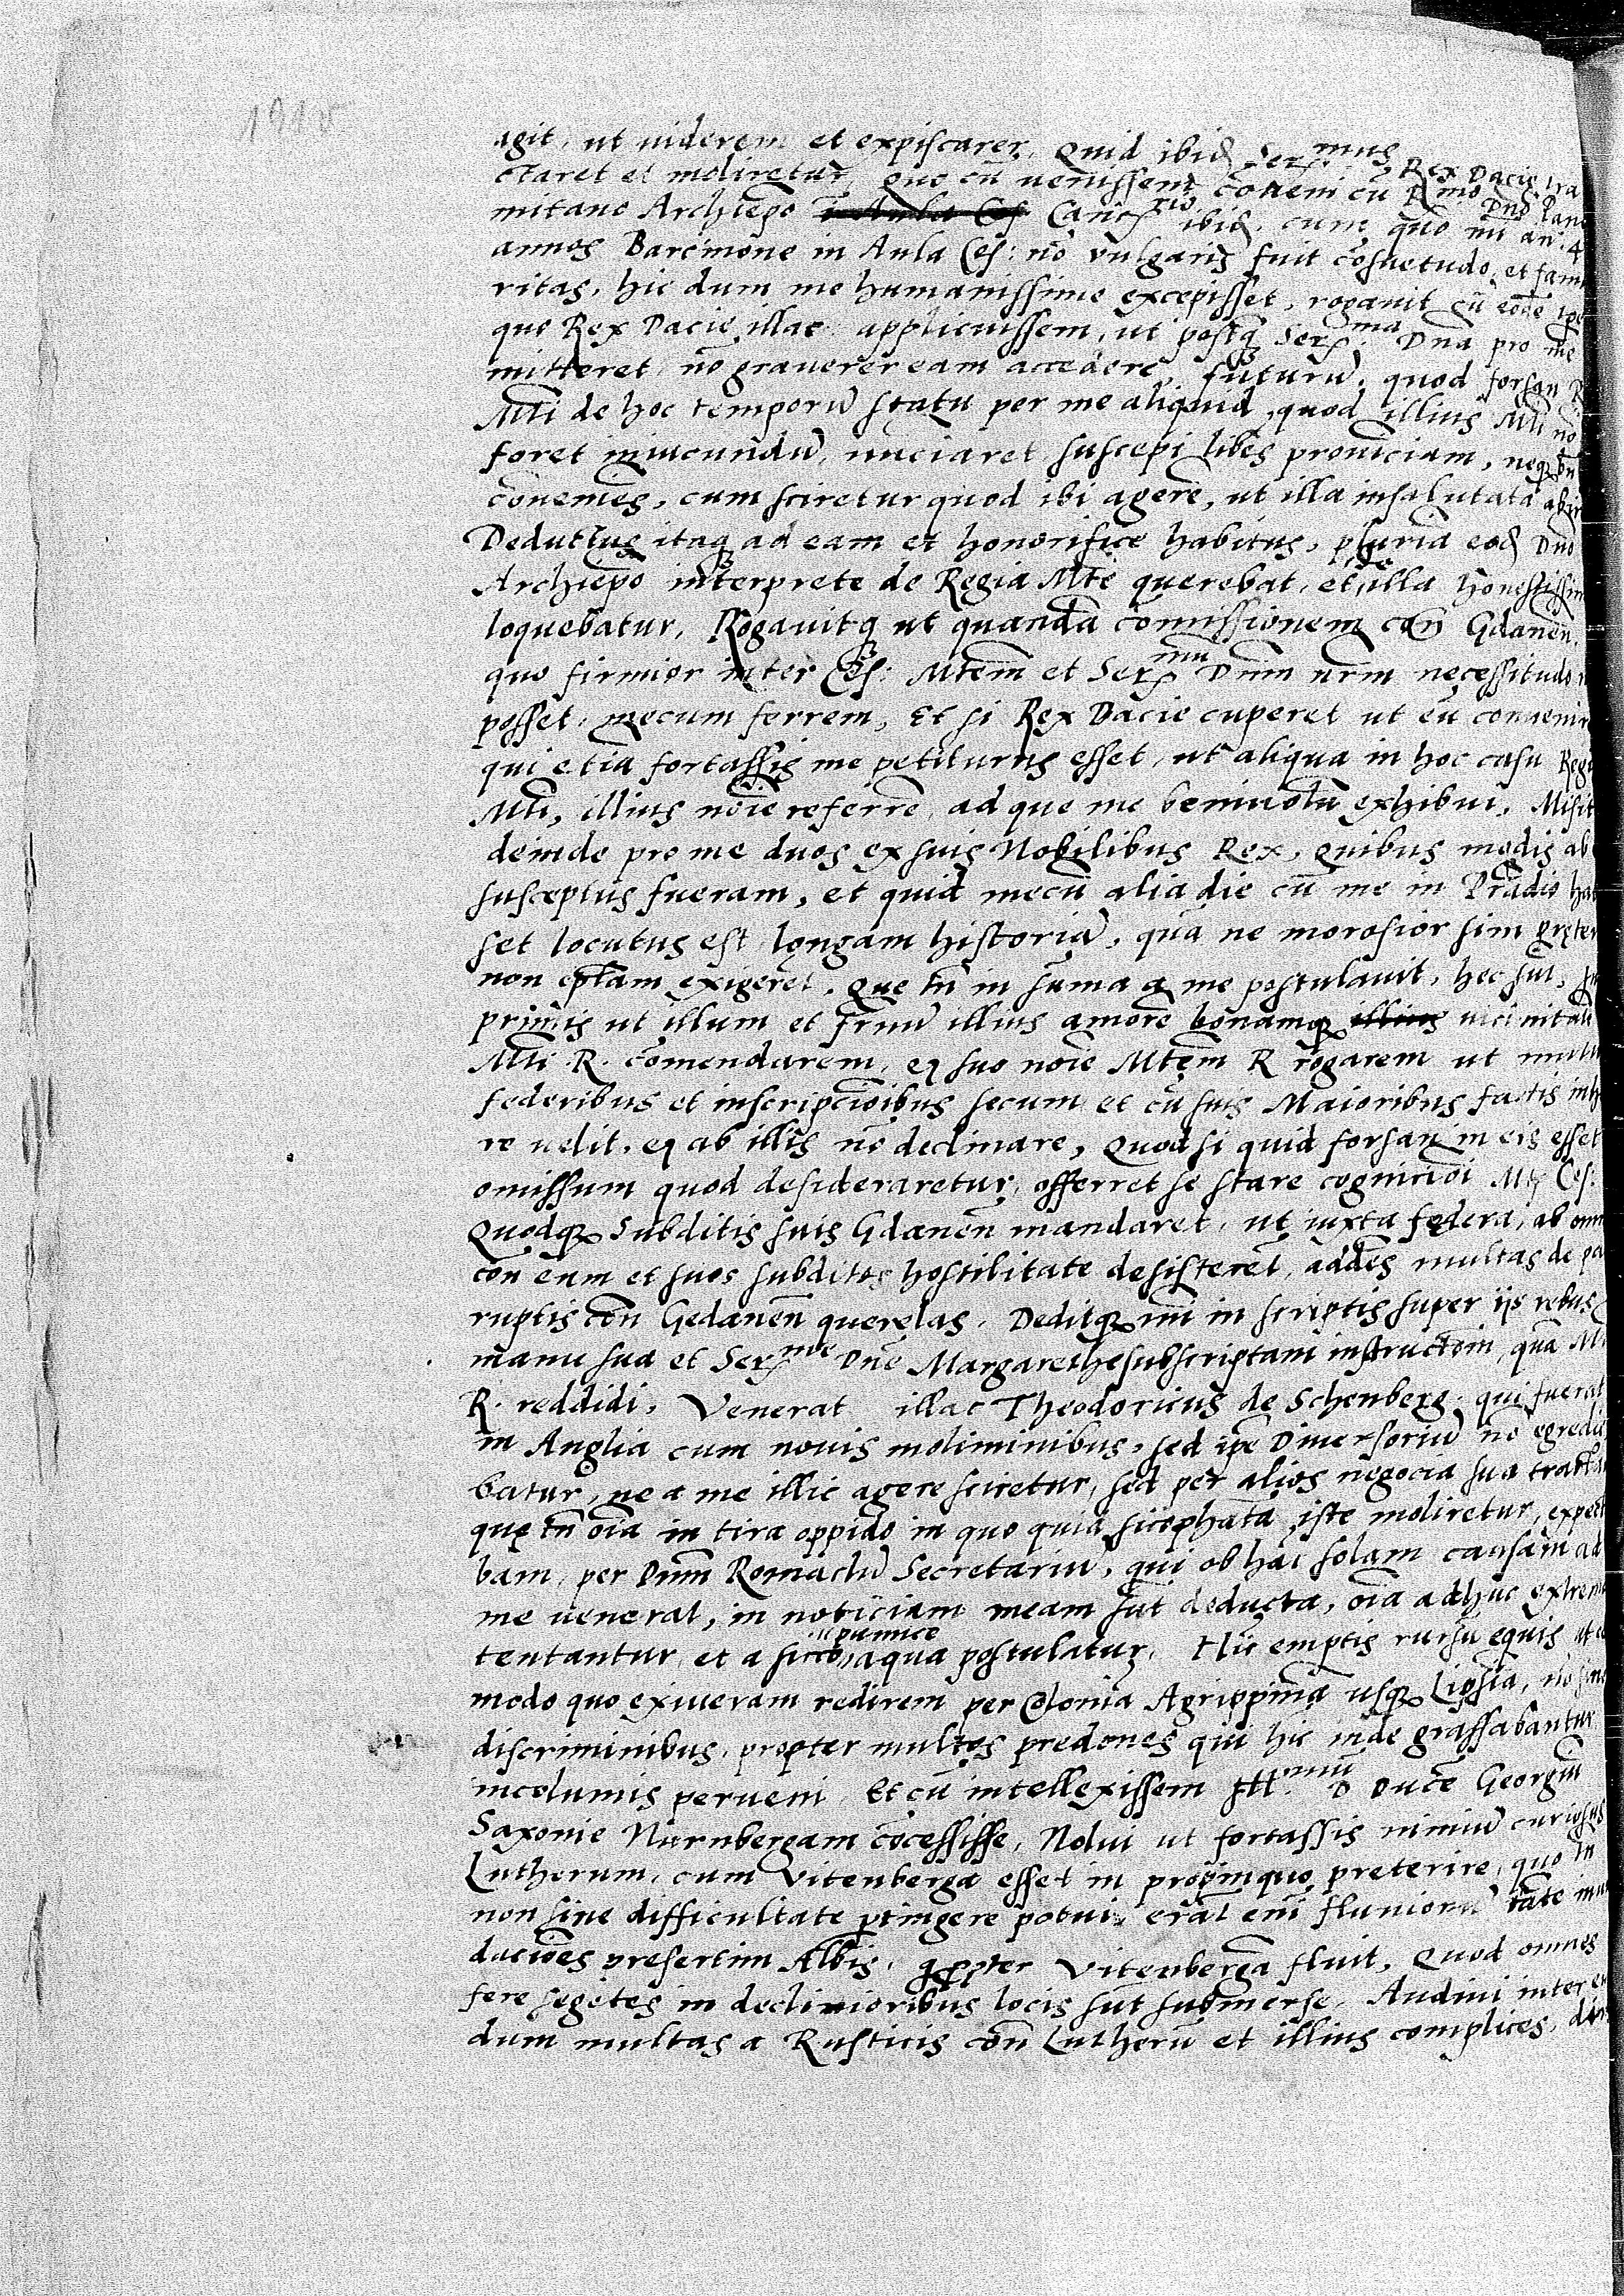 agit, ut uiderem et expiscarer, Quid ibid Ser mus Rex Dacie tra
ctaret et moliretur, quo cũ venissem cõueni cũ R mo Dno Pan
mitano Archiepo Canc rio ibid, cum quo mi an: 4
annos Barcinone in Aula Ces: nõ vulgaris fuit cõsuetudo, et fami
ritas, hic dum me humanissime excepisset, rogauit cũ eode tpe
quo Rex Dacie illac applicuissem, ut postq Ser ma Dna pro me
mitteret nõ grauerer eam accedere, futurũ, quod forsan R
Mti de hoc temporũ statu per me aliquid, quod illius Mti nõ
foret iniucundũ, nunciaret, suscepi libẽs prouĩciam, neq
cõueniẽs, cum sciretur quod ibi agerẽ, ut illa insalutata abir
Deductus itaq ad eam et honorifice habitus, pluria eod Dno
Archiepo interprete de Regia Mte querebat, et de illa honestissim
loquebatur, Rogauitq ut quandã comissionem con Gdanen.
quo firmior inter Ces: Mtem et Ser mũ Dnm nrm necessitudo
posset, mecum ferrem, Et si Rex Dacie cuperet ut eũ conuenir
qui etiã fortassis me petiturus esset, ut aliqua in hoc casu Regi
Mti, illius noĩe referrẽ, ad que me beniuolũ exhibui, Misit
deinde pro me duos ex suis Nobilibus Rex, quibus modis ab
susceptus fueram, et quid mecũ alia die cũ me in Prãdio hab
set locutus est longam historiã, quã ne morosior sim preter
non eptam exigeret, Que tñ in sũma a me postulauit, hec sut,
primis ut illum et frnũ illius amorẽ bonamq illius uicinitatẽ
Mti R. cõmendarem, eq suo noĩe Mtem R rogarem ut mutu
federibus et inscripcioĩbus secum et cũ suis Maioribus factis inh
re uelit, eq ab illis nõ declinare, Quod si quid forsan in eis esset
omissum quod desideraretur, offerret se stare cognicioi Mtis Ces:
Quodq Subditis suis Gdanen mandaret, ut iuxta federa, ab omn
con eum et suos subditos hostilitate desisterẽt, addẽs multas de pa
ruptis con Gedanen querelas, Deditq mi in scriptis super ijs rebus
manu sua et Ser me Dne Margarethe subscriptam instructoem, quã Mti
R. reddidi, Venerat illac Theodoricus de Schenberg, qui fuerat
in Anglia cum nouis moliminibus, sed ipe Diuersoriũ nõ egredie
batur, ne a me illic agere sciretur, sed per alios negocia sua tracta
que tñ oĩa in tira oppido in quo quid sicophãta iste moliretur, expect
bam, per Dnm Romaclũ Secretariũ, qui ob hãc solam causam ad
me uenerat, in noticiam meam sut deducta, oĩa adhuc extrem
tentantur, et a sicco pumice aqua postulatur, Hic emptis rursũ equis ut e
modo quo exiueram redirem per Coloniã Agrippinã usq Lipsiã, nõ sine
discriminibus, propter multos predones qui hic inde grassabantur
incolumis perueni, Et cũ intellexissem Ill mũ D Ducẽ Georgiũ
Saxonie Nurnbergam cõcessisse, Nolui ut fortassis nimiũ curiosus
Lutherum, cum Vitenberga esset in propinquo, preterire, quo tñ
non sine difficultate ptingere potui, erãt eni fluuiorũ tãte inu
dacioẽs presertim Albis, q pter Vitenbergã fluit, Quod omnes
fere segetes in decliuioribus locis sut submerse, Audiui inter eu
dum multas a Rusticis con Lutherũ et illius complices, dir